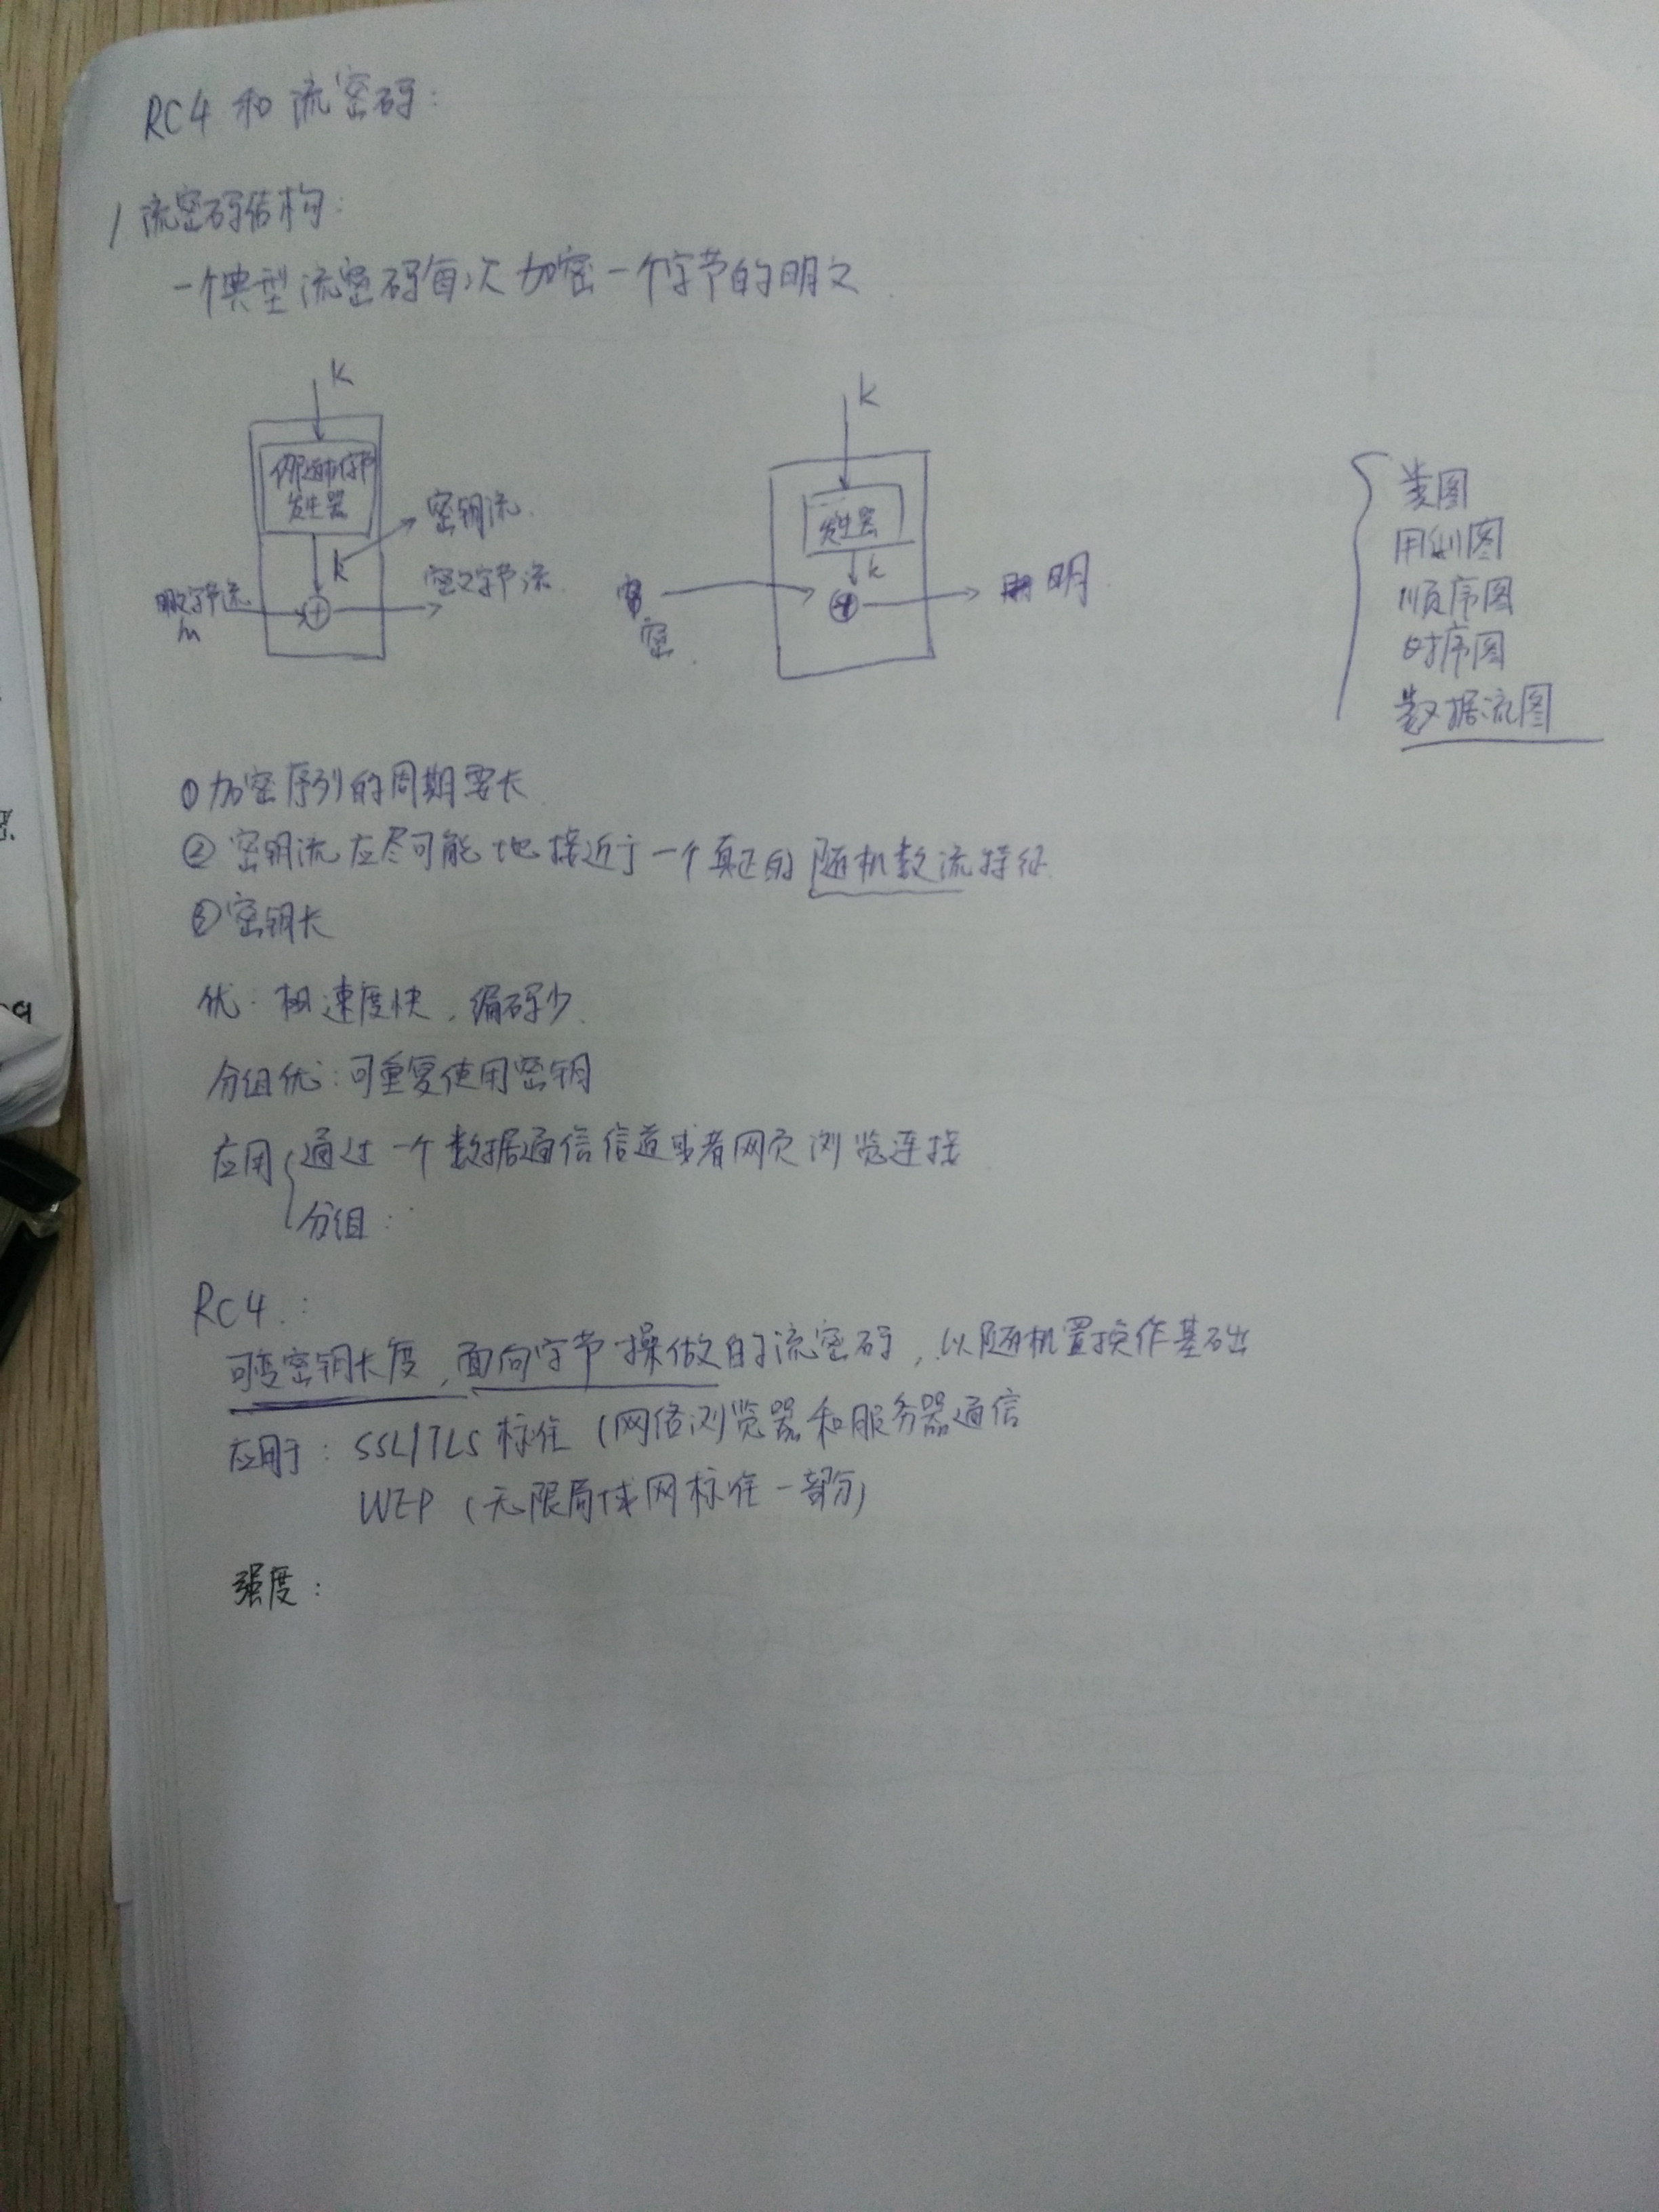 RC4 和 流密码：
1 流密码结构：
一个典型流密码每次加密一个字节的明文
k
伪随机字节
发生器
k
密钥流
密文字节流
明文字节流
m
k
发生器
k
密
明
类图
用例图
顺序图
时序图
数据流图
①加密序列的周期要长
②密钥流应尽可能地接近于一个真正的随机数流特征
③密钥长
优：速度快，编码少
分组优：可重复使用密钥
应用 通过一个数据通信信道或者网页浏览连接
分组：
RC4：
可变密钥长度，面向字节操做的流密码，以随机置换作基础
应用于：SSL/TLS 标准（网络浏览器和服务器通信
WEP（无限局域网标准一部分）
强度：